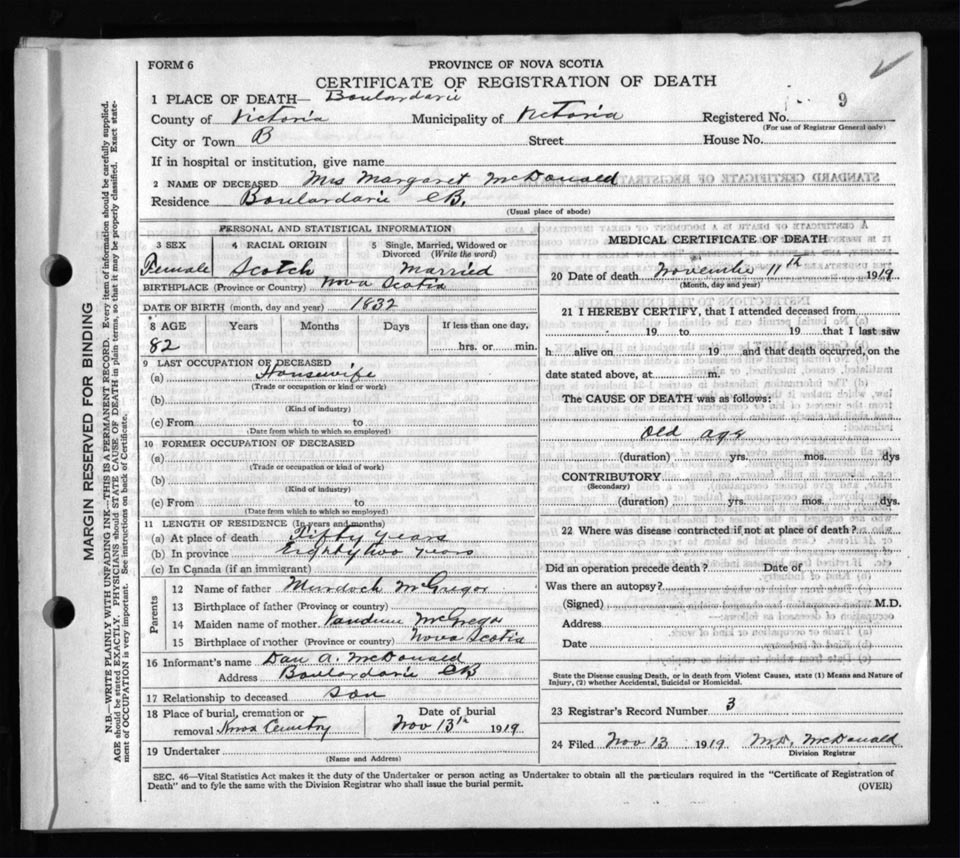 FORM 6
PROVINCE OF NOVA SCOTIA
CERTIFICATE OF REGISTRATION OF DEATH
9
1 PLACE OF DEATH— Boulardarie
County of Victoria Municipality of Victoria Registered No.
(For use of Registrar General only)
City or Town B Street House No.
If in hospital or institution, give name
2 NAME OF DECEASED Mrs Margaret McDonald
Residence Boulardarie CB.
(Usual place of abode)
PERSONAL AND STATISTICAL INFORMATION
3 SEX 4 RACIAL ORIGIN 5 Single, Married, Widowed or Divorced (Write the word)
Female Scotch Married
BIRTHPLACE (Province or Country) Nova Scotia
DATE OF BIRTH (month, day and year) 1832
8 AGE Years Months Days If less than one day,
82 hrs. or min.
9 LAST OCCUPATION OF DECEASED
(a) Housewife
(Trade or occupation or kind or work)
(b)
(Kind of industry)
(c) From to
(Date from which to which so employed)
10 FORMER OCCUPATION OF DECEASED
(a)
(Trade or occupation or kind of work)
(b)
(Kind of industry)
(c) From to
(Date from which to which so employed)
11 LENGTH OF RESIDENCE (In years and months)
(a) At place of death Fifty years
(b) In province Eighty two years
(c) In Canada (if an immigrant)
Parents
12 Name of father Murdoch McGregor
13 Birthplace of father (Province or country)
14 Maiden name of mother McGregor
15 Birthplace of mother (Province or country) Nova Scotia
16 Informant's name Dan A. McDonald
Address Boulardarie CB
17 Relationship to deceased son
18 Place of burial, cremation or removal Cemetry
Date of burial
Nov 13th 1919
19 Undertaker
(Name and Address)
MEDICAL CERTIFICATE OF DEATH
20 Date of death November 11th 1919
(Month, day and year)
21 I HEREBY CERTIFY, that I attended deceased from
19 to 19 that I last saw
h alive on 19 and that death occurred, on the
date stated above, at m.
The CAUSE OF DEATH was as follows:
Old age
(duration) yrs. mos. dys
CONTRIBUTORY
(Secondary)
(duration) yrs. mos. dys.
22 Where was disease contracted if not at place of death?
Did an operation precede death? Date of
Was there an autopsy?
(Signed) M.D.
Address
Date
State the Disease causing Death, or in death from Violent Causes, state (1) Means and Nature of
Injury, (2) whether Accidental, Suicidal or Homicidal.
23 Registrar's Record Number 3
24 Filed Nov 13 1919 M.D. McDonald
Division Registrar
SEC. 46—Vital Statistics Act makes it the duty of the Undertaker or person acting as Undertaker to obtain all the particulars required in the "Certificate of Registration of
Death" and to fyle the same with the Division Registrar who shall issue the burial permit.
(OVER)
MARGIN RESERVED FOR BINDING
N.B.—WRITE PLAINLY WITH UNFADING INK—THIS IS A PERMANENT RECORD. Every item of information should be carefully supplied.
AGE should be stated EXACTLY. PHYSICIANS should STATE CAUSE OF DEATH in plain terms, so that it may be properly classified. Exact state-
ment of OCCUPATION is very important. See instructions on back of Certificate.